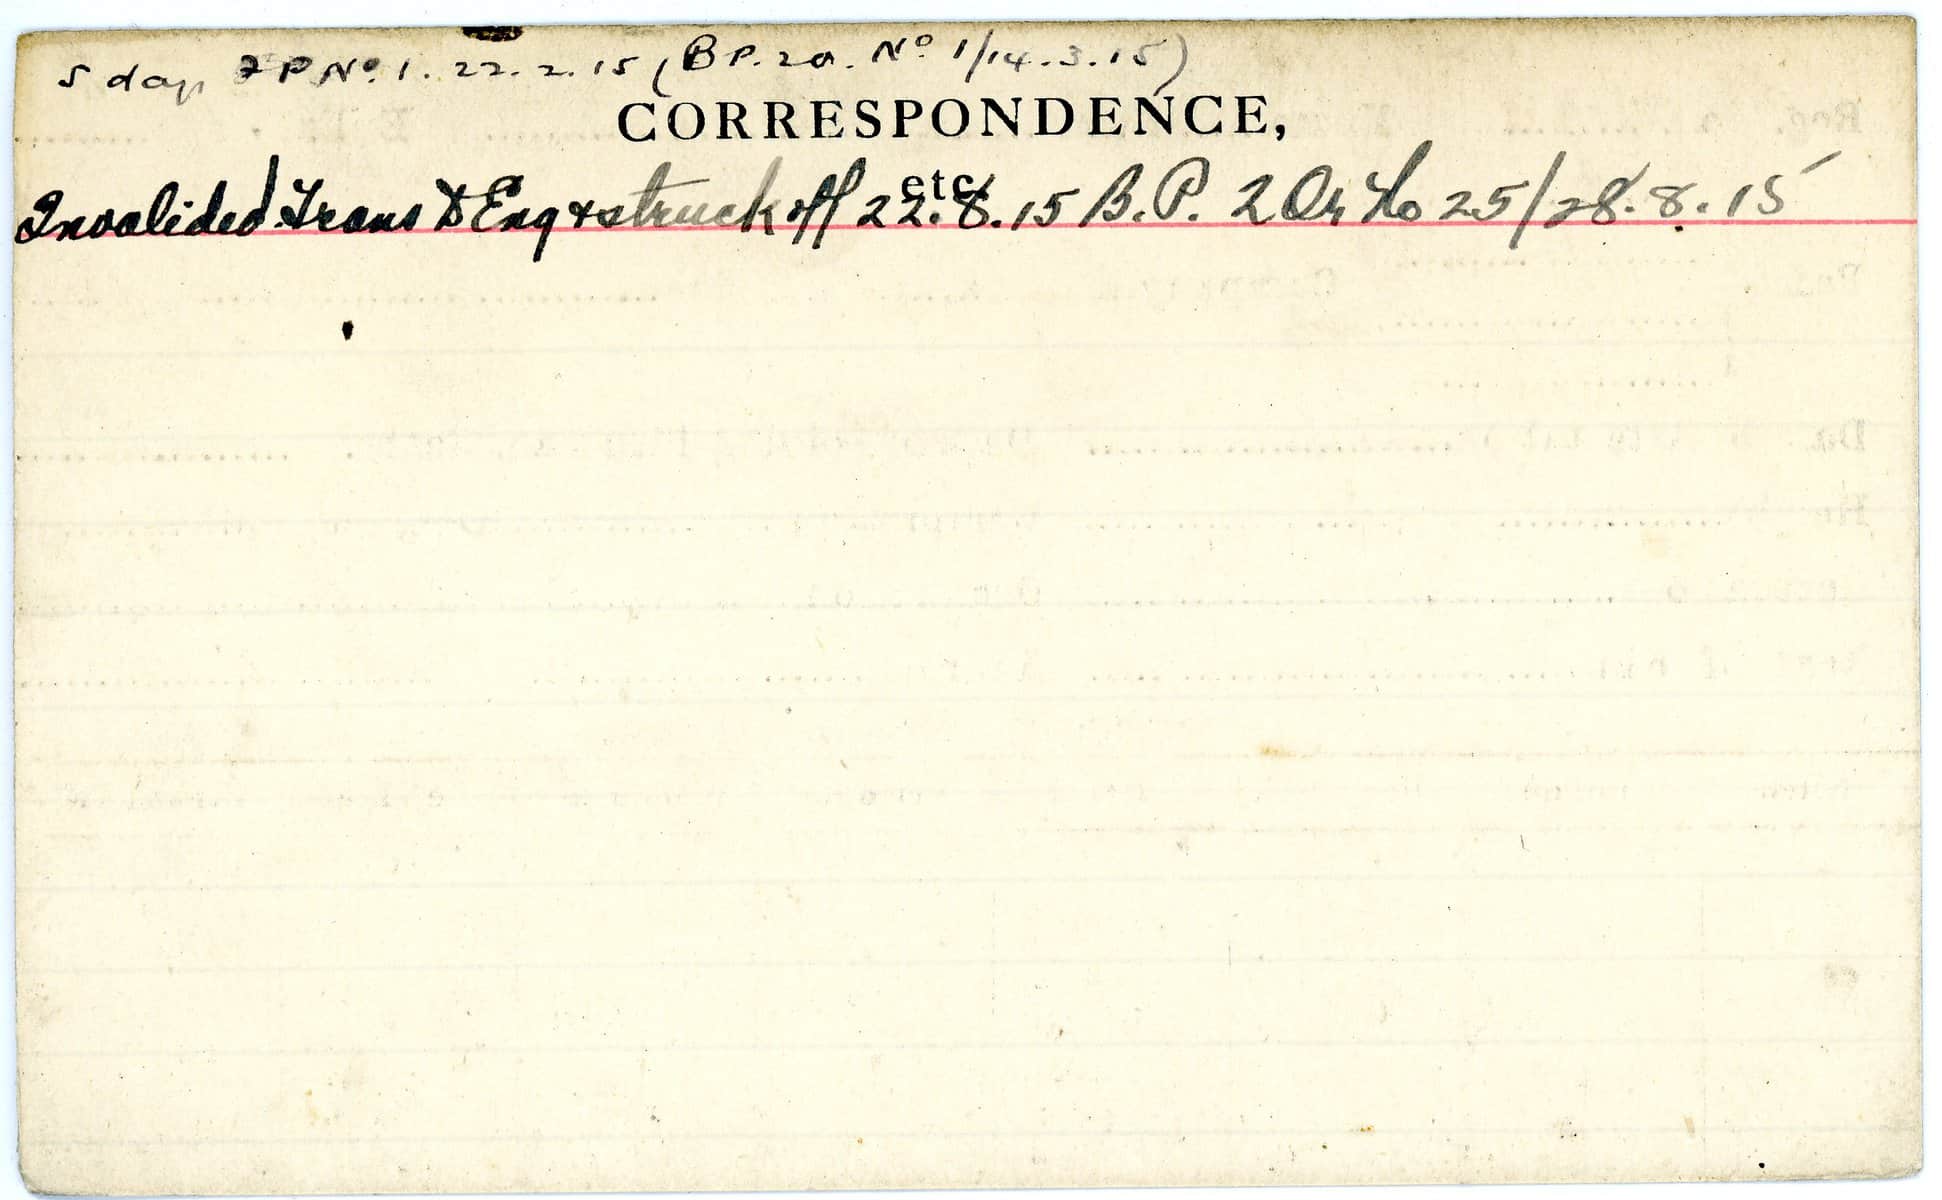 5 days F P No. 1. 22.2.15 (B P. 2 o. No 1/14.3.15)
CORRESPONDENCE,
etc.
Invalided Trans to Eng & struck off 22.8.15 B.P. 2 Or No 25/28.8.15